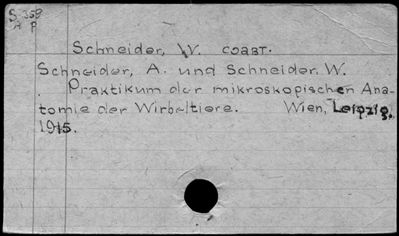 S 359
A P
Schneider, W. соавт.
Schneider, A. und Schneider. W.
Praktikum der mikroskopischen Ana-
tomie der Wirbeltiere. Wien, Leipzig.
1915.